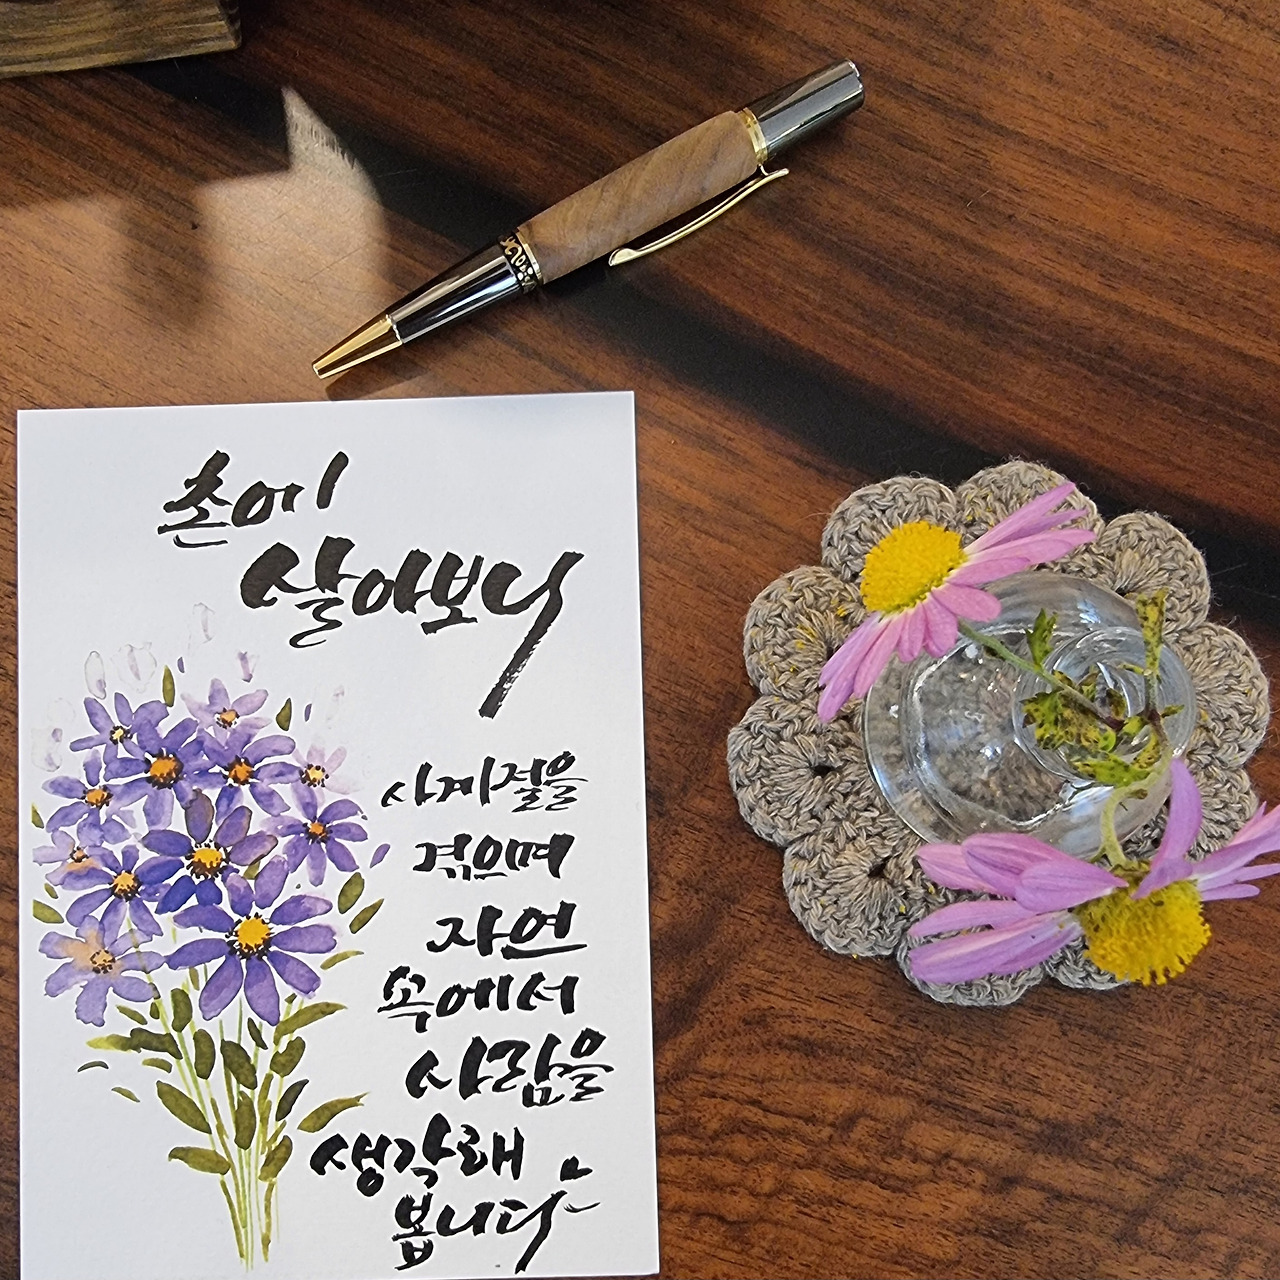 촌에
살아보니
사계절을
겪으며
자연
속에서
사람을
생각해
봅니다